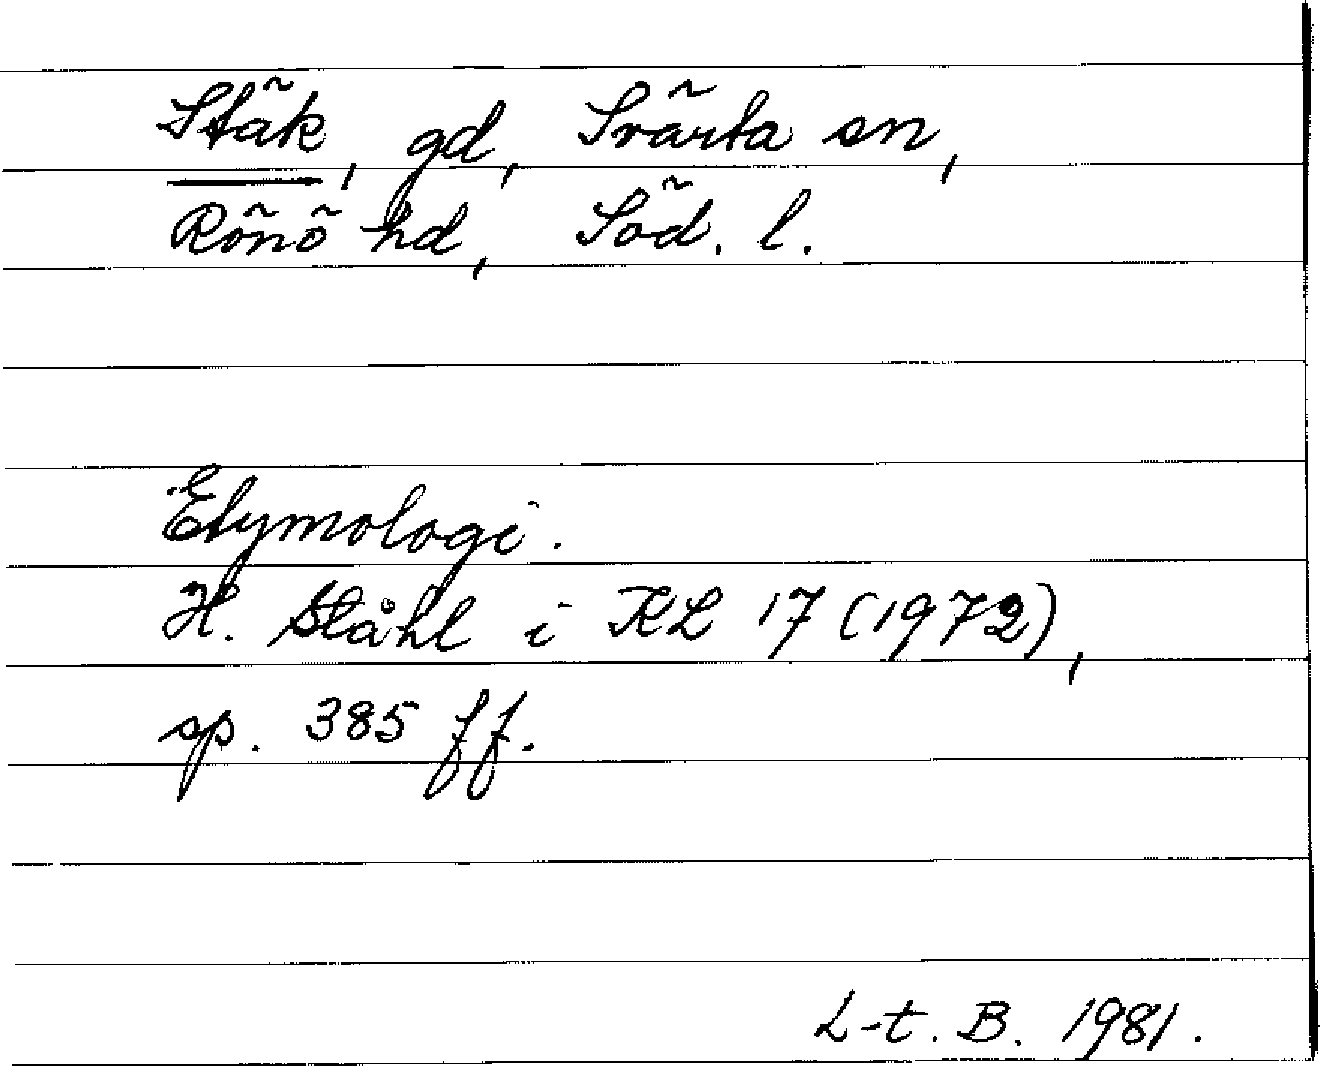 Stäk, gd, Svärta sn,
Rönö hd, Söd. l.
Etymologi.
H. Ståhl i KL 17 (1972),
sp. 385 ff.
L-t. B. 1981.